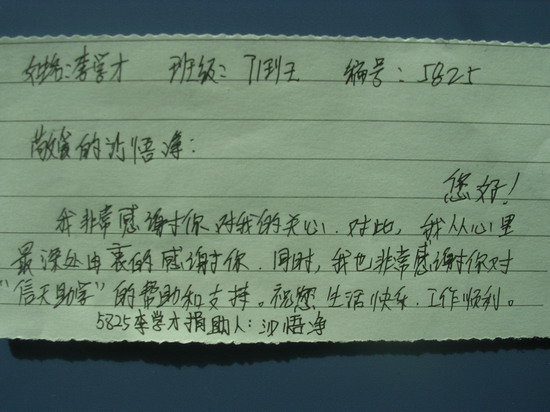 姓名:李学才 班级: 编号: 5825
敬爱的沙悟净:
您好!
我非常感谢你对我的关心.对此,我从心里
最深处由衷的感谢你.同时,我也非常感谢你对
“信天助学”的帮助和支持。祝您生活快乐.工作顺利。
5825李学才捐助人:沙悟净